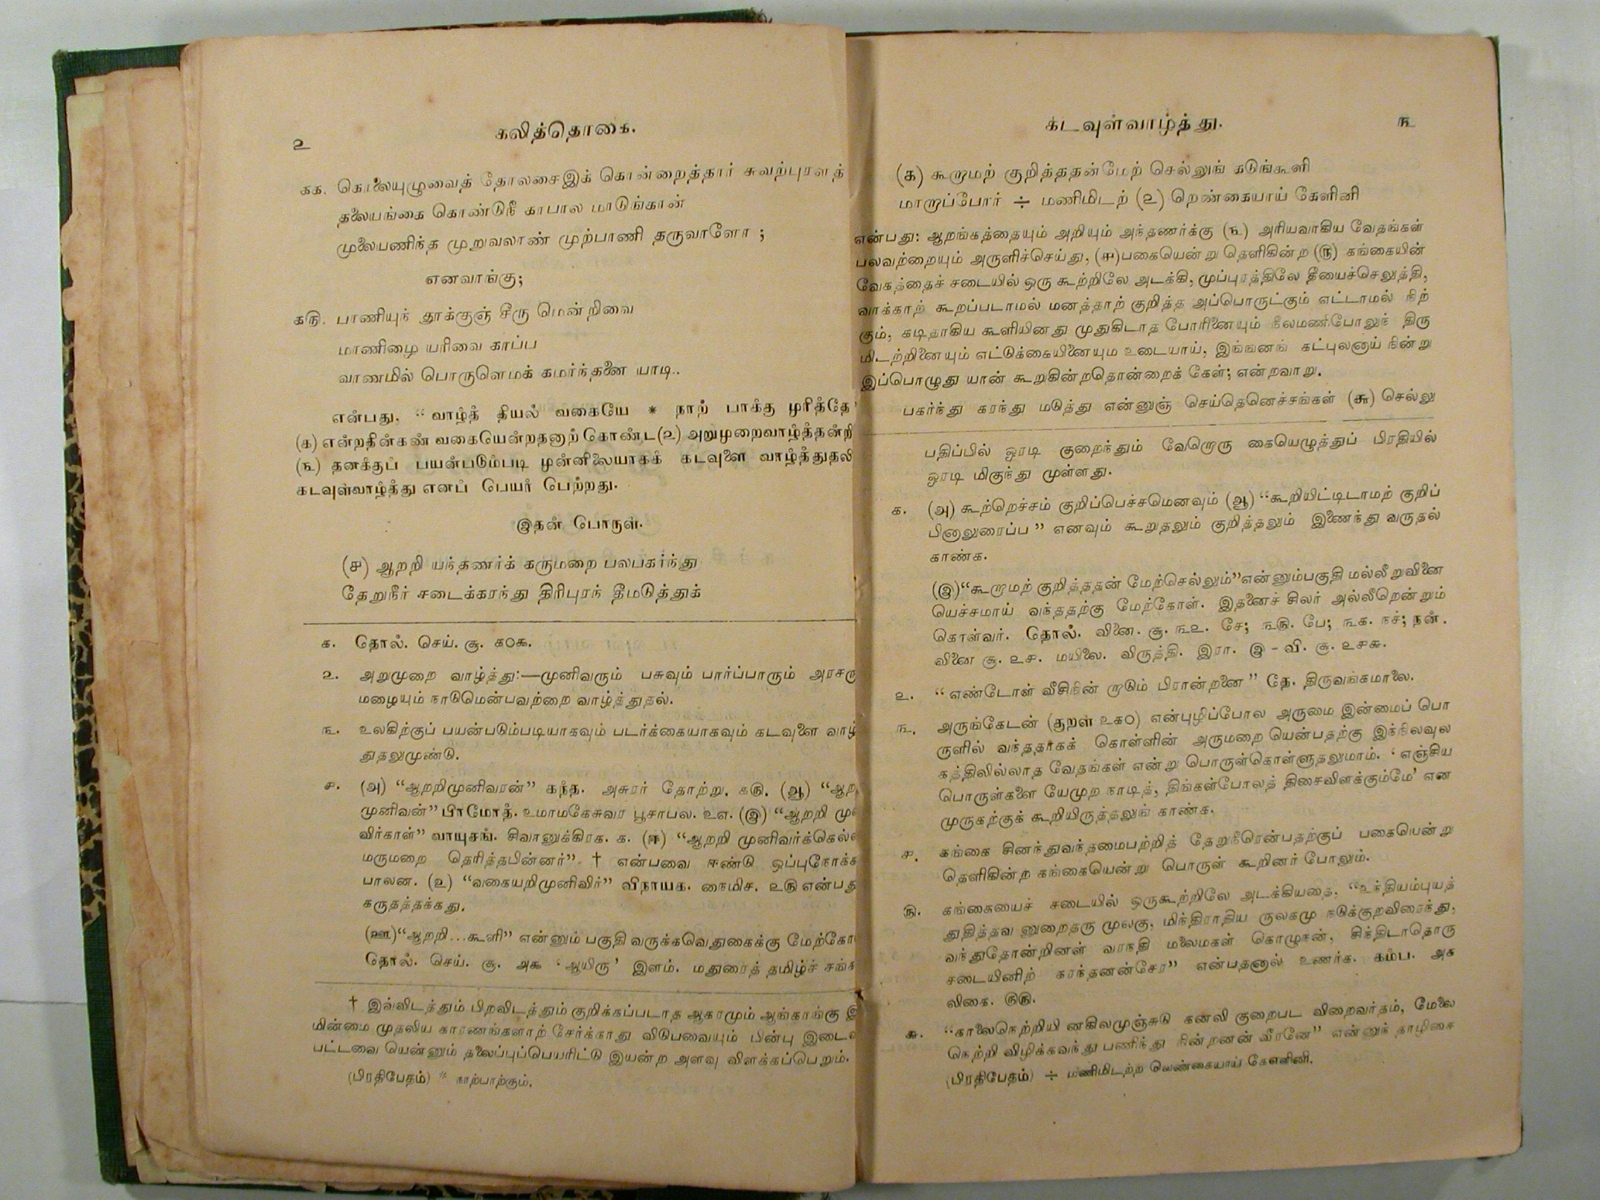 ௨
கலித்தொகை.
கக. கொலையுழுவைத் தோலசைஇக் கொன்றைத்தார் சுவற்புரளத்
தலையங்கை கொண்டுநீ காபால மாடுங்கான்
முலைபணிந்த முறுவலாண் முற்பாணி தருவாளோ ;
எனவாங்கு;
கரு. பாணியுந் தூக்குஞ் சீரு மென்றிவை
மாணிழை யரிவை காப்ப
வாணமில் பொருளெமக் கமர்ந்தனை யாடி..
என்பது. “வாழ்த் தியல் வகையே * நாற் பாக்கு முரித்தே
(க) என்றதின்கண் வகையென்றதனாற் கொண்ட (௨) அறுமுறைவாழ்த்தன்றி
(௩) தனக்குப் பயன்படும்படி முன்னிலையாகக் கடவுளை வாழ்த்துதலி
கடவுள்வாழ்த்து எனப் பெயர் பெற்றது.
இதன் பொருள்.
(ச) ஆறறி யந்தணர்க் கருமறை பலபகர்ந்து
தேறுநீர் சடைக்கரந்து திரிபுரந் தீமடுத்துக்
க. தொல். செய். சூ. க௦௯.
௨. அறுமுறை வாழ்த்து:—முனிவரும் பசுவும் பார்ப்பாரும் அரசரு
மழையும் நாடுமென்பவற்றை வாழ்த்துதல்.
௩. உலகிற்குப் பயன்படும்படியாகவும் படர்க்கையாகவும் கடவுளை வாழ்
துதலுமுண்டு.
ச. (அ) “ஆறறிமுனிவரன்” கந்த. அசுரர் தோற்று. கரு. (ஆ) “ஆற
முனிவன்” பிரமோத். உமாமகேசுவர பூசாபல. ௨எ. (இ) “ஆறறி மு
விர்காள்” வாயுசங். சிவானுக்கிரக. க. (ஈ) “ஆறறி முனிவர்க்கெல்
மருமறை தெரித்தபின்னர்” † என்பவை ஈண்டு ஒப்புநோக்க
பாலன. (உ) “வகையறிமுனிவிர்” விநாயக. நைமிச. ௨ரு என்பது
கருதத்தக்கது.
(ஊ) “ஆறறி...கூளி” என்னும் பகுதி வருக்கவெதுகைக்கு மேற்கோ
தொல். செய். சூ. அக ‘ஆயிரு’ இளம். மதுரைத் தமிழ்ச் சங்க
† இவ்விடத்தும் பிறவிடத்தும் குறிக்கப்படாத ஆகரமும் ஆங்காங்கு இ
மின்மை முதலிய காரணங்களாற் சேர்க்காது விடுபவையும் பின்பு இடை
பட்டவை யென்னும் தலைப்புப்பெயரிட்டு இயன்ற அளவு விளக்கப்பெறும்.
(பிரதிபேதம்) * நாற்பாற்கும்.
கடவுள்வாழ்த்து.
௩
(க) கூறாமற் குறித்ததன்மேற் செல்லுங் கடுங்கூளி
மாறாப்போர் ÷ மணிமிடற் (௨) றெண்கையாய் கேளினி
என்பது: ஆறங்கத்தையும் அறியும் அந்தணர்க்கு (௩) அரியவாகிய வேதங்கள்
பலவற்றையும் அருளிச்செய்து, (ச)பகையென்று தெளிகின்ற (ரு) கங்கையின்
வேகத்தைச் சடையில் ஒரு கூற்றிலே அடக்கி, முப்புரத்திலே தீயைச்செலுத்தி,
வாக்காற் கூறப்படாமல் மனத்தாற் குறித்த அப்பொருட்கும் எட்டாமல் நிற்
கும், கடிதாகிய கூளியினது முதுகிடாத போரினையும் நீலமணிபோலுந் திரு
மிடற்றினையும் எட்டுக்கையினையும் உடையாய், இங்ஙனங் கட்புலனாய் நின்று
இப்பொழுது யான் கூறுகின்றதொன்றைக் கேள்; என்றவாறு.
பகர்ந்து கரந்து மடுத்து என்னுஞ் செய்தெனெச்சங்கள் (௬) செல்லு
பதிப்பில் ஓரடி குறைந்தும் வேறொரு கையெழுத்துப் பிரதியில்
ஓரடி மிகுந்து முள்ளது.
க. (அ) கூற்றெச்சம் குறிப்பெச்சமெனவும் (ஆ) “கூறியிட்டிடாமற் குறிப்
பினாலுரைப்ப” எனவும் கூறுதலும் குறித்தலும் இணைந்து வருதல்
காண்க.
(இ)“கூறாமற் குறித்ததன் மேற்செல்லும்”என்னும்பகுதி மல்லீறுவினை
யெச்சமாய் வந்ததற்கு மேற்கோள். இதனைச் சிலர் அல்லீறென்றும்
கொள்வர். தொல். வினை. சூ. ௩௨. சே; ௩ரு. பே; ௩க. நச்; நன்.
வினை சூ. ௨ச. மயிலை. விருத்தி. இரா. இ - வி. சூ. ௨ச௬.
௨. “எண்டோள் வீசிநின் றாடும் பிரான்றனை” தே. திருவங்கமாலை.
௩. அருங்கேடன் (குறள் ௨க௦) என்புழிப்போல அருமை இன்மைப் பொ
ருளில் வந்ததாகக் கொள்ளின் அருமறை யென்பதற்கு இந்நிலவுல
கத்திலில்லாத வேதங்கள் என்று பொருள்கொள்ளுதலுமாம். ‘எஞ்சிய
பொருள்களை யேமுற நாடித், திங்கள்போலத் திசைவிளக்கும்மே’ என
முருகற்குக் கூறியிருத்தலுங் காண்க.
ச. கங்கை சினந்துவந்தமைபற்றித் தேறுநீரென்பதற்குப் பகையென்று
தெளிகின்ற கங்கையென்று பொருள் கூறினர் போலும்.
ரு. கங்கையைச் சடையில் ஒருகூற்றிலே அடக்கியதை, “உந்தியம்புயத்
துதித்தவ னுறைதரு முலகு, மிந்திராதிய ருலகமு நடுக்குறவிரைந்து,
வந்துதோன்றினள் வரநதி மலைமகள் கொழுநன், சிந்திடாதொரு
சடையினிற் கரந்தனன்சேர” என்பதனால் உணர்க. கம்ப. அக
லிகை. ௫௫.
௬. “காலைநெற்றியி னகிலமுஞ்சுடு கனலி குறைபட விறைவர்தம், மேலை
நெற்றி விழிக்கவந்து பணிந்து நின்றனன் வீரனே” என்னுந் தாழிசை
(பிரதிபேதம்) ÷ மணிமிடற்ற வெண்கையாய் கேளினி.